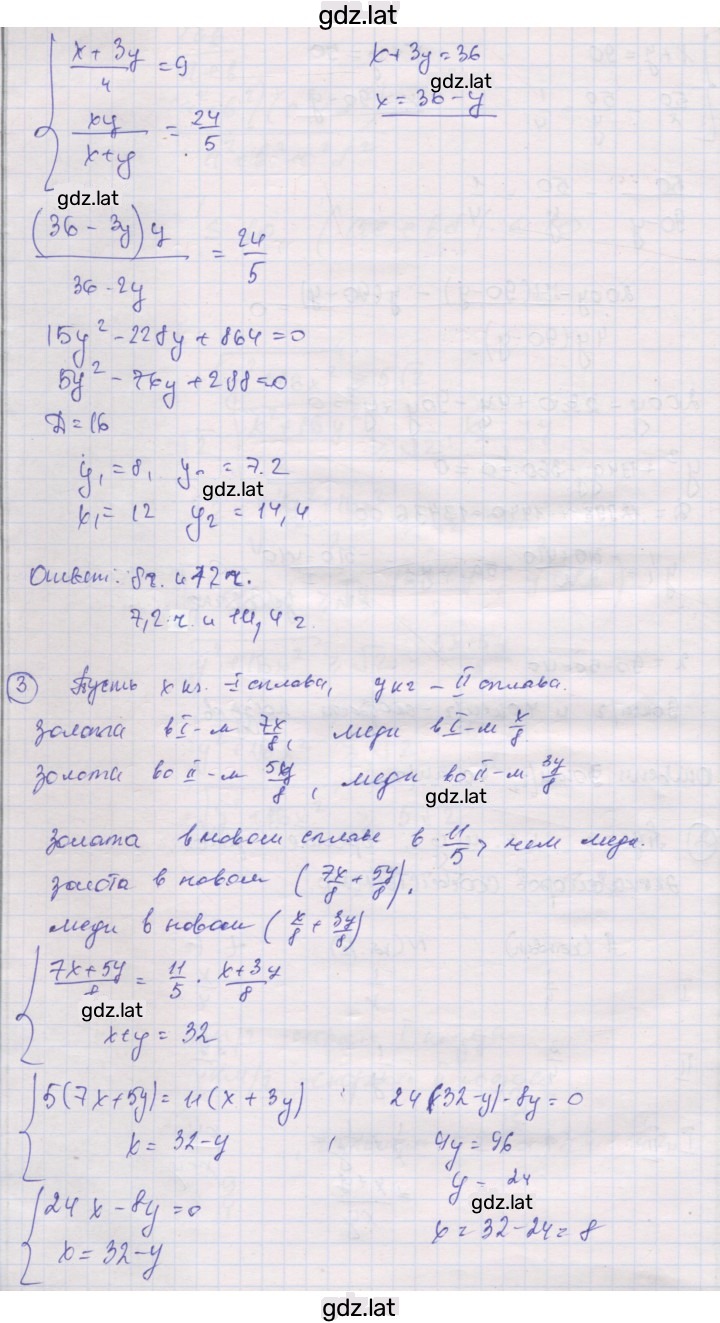 gdz.lat
x + 3y / 4 = 9
x + 3y = 36
gdz.lat
xy / x+y = 24/5
x = 36 - y
gdz.lat
(36 - 3y) y / 36 - 2y = 24/5
15y² - 228y + 864 = 0
5y² - 76y + 288 = 0
D = 16
y₁ = 8, y₂ = 7.2
gdz.lat
x₁ = 12 y₂ = 14,4
Ответ: 8ч. и 12ч.
7,2 ч. и 14,4 ч.
3 Пусть x кг. - I сплава, y кг - II сплава.
золота в I-м 7x/8, меди в I-м x/8
золота во II-м 5y/8, меди во II-м 3y/8
gdz.lat
золота в новом сплаве в 11/5 > чем меди.
золота в новом (7x/8 + 5y/8),
меди в новом (x/8 + 3y/8)
7x + 5y / 8 = 11/5 · x+3y / 8
gdz.lat
x+y = 32
5(7x+5y) = 11(x + 3y)
24(32-y)-8y=0
x = 32-y
4y = 96
24x - 8y = 0
y = 24
gdz.lat
x = 32-y
x = 32-24 = 8
gdz.lat